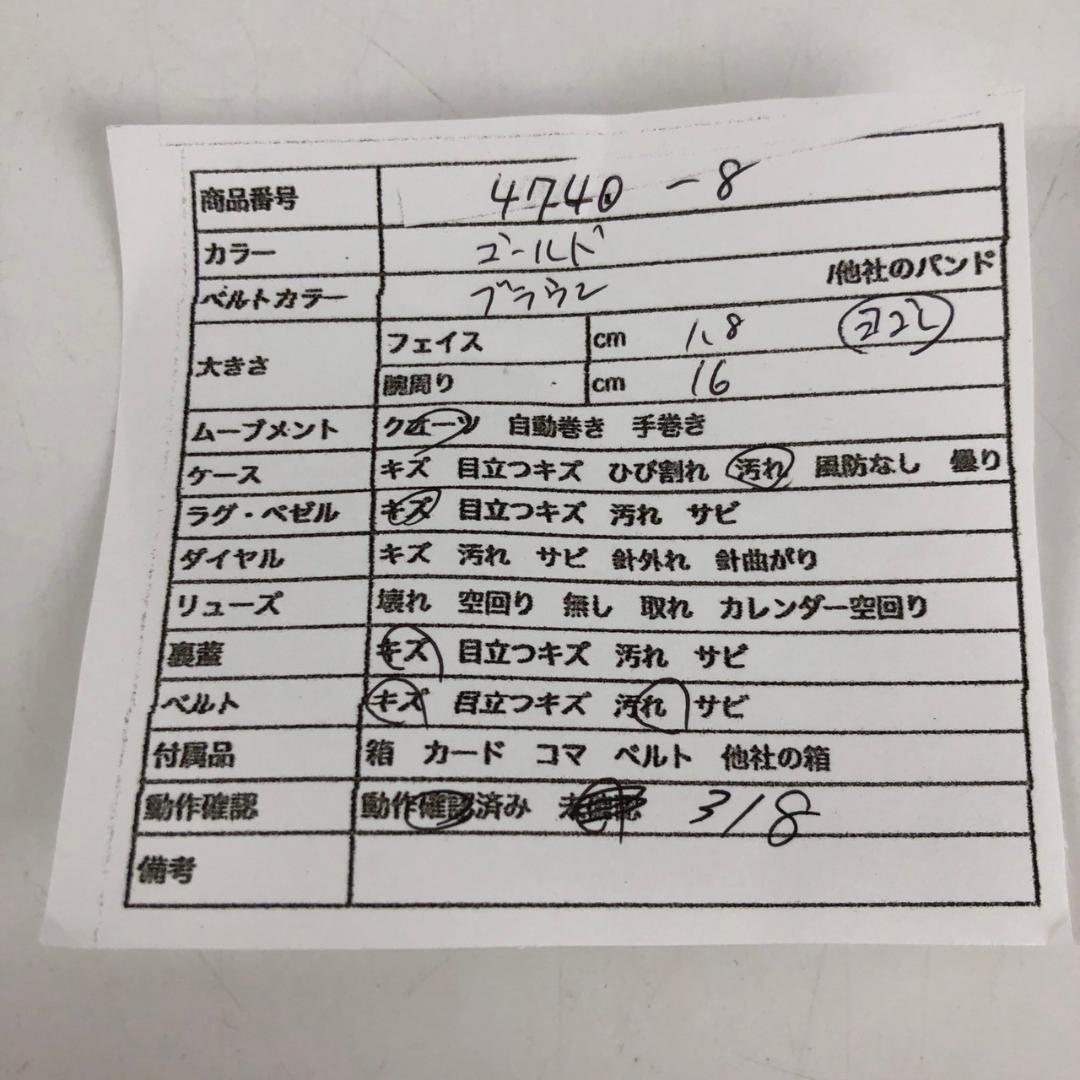 商品番号 4740 -8
カラー ゴールド
ベルトカラー ブラウン /他社のバンド
大きさ フェイス cm 1.8 ヨコなし
腕周り cm 16
ムーブメント クオーツ 自動巻き 手巻き
ケース キズ 目立つキズ ひび割れ 汚れ 風防なし 曇り
ラグ・ベゼル キズ 目立つキズ 汚れ サビ
ダイヤル キズ 汚れ サビ 針外れ 針曲がり
リューズ 壊れ 空回り 無し 取れ カレンダー空回り
裏蓋 キズ 目立つキズ 汚れ サビ
ベルト キズ 目立つキズ 汚れ サビ
付属品 箱 カード コマ ベルト 他社の箱
動作確認 動作確認済み 未確認 3/8
備考